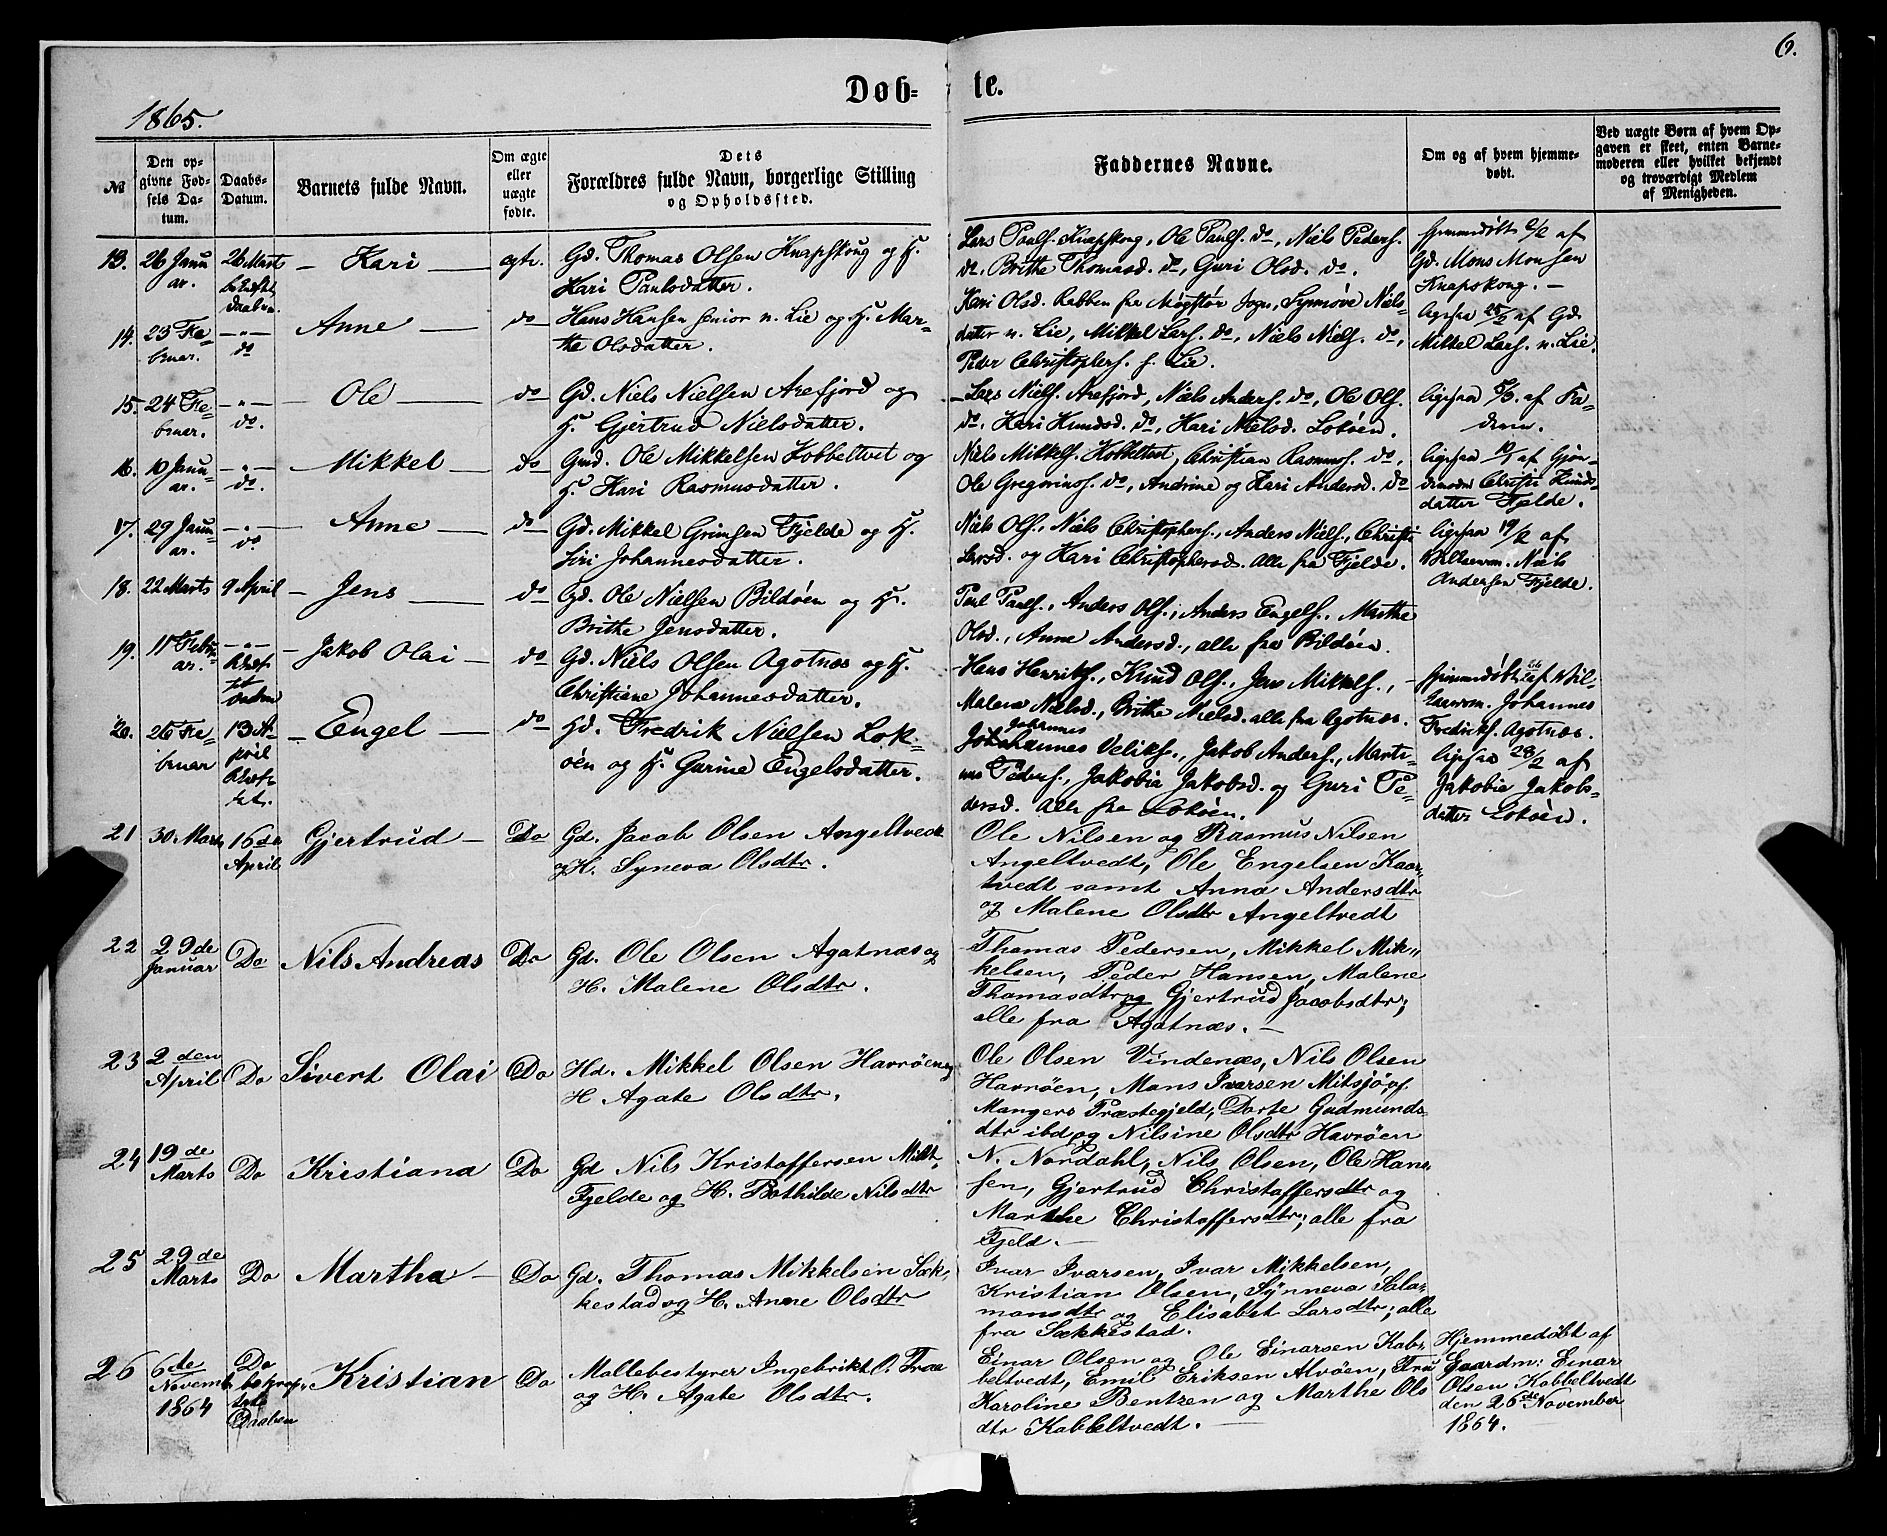 6.
Døb- te.
1865.
№
Den op-
givne Fød-
sels Da-
tum.
Daabs-
Datum.
Barnets fulde Navn.
Om ægte
eller
uægte
fødte.
Dets
Forældres fulde Navn, borgerlige Stilling
og Opholdssted.
Faddernes Navne.
Om og af hvem hjemme-
døbt.
Ved uægte Børn af hvem Op-
gaven er skeet, enten Barne-
moderen eller hvilket bekjendt
og troværdigt Medlem
af Menigheden.
13. 26 Janu
ar.
26 Marts
Daaben.
Kari
ægte.
Gd. Thomas Olsen Knapskoug og H.
Kari Paulsdatter.
Lars Pauls. Knapskog, Ole Pauls. do, Niels Peders.
do. Brithe Thomasd. do, Guri Olsd. do.
hjemmedøbt 2/2 af
Gd. Mons Monsen
Knapskong. –
14. 23 Fe-
bruar.
– " –
do
Anne
do
Hans Hansen senior n. Lie og H. Mar-
the Olsdatter.
Kari Olsd. Rabben fra Møgster Sogn, Synnøve Niels-
datter n. Lie, Mikkel Lars. do, Niels Niels. do,
Peder Christophers. s. Lie.
ligesaa 25/2 af Gd.
Mikkel Lars. n. Lie.
15. 24 Fe-
bruar.
– " –
do.
Ole
do
Gd. Niels Nielsen Arefjord og
H. Gjertrud Nielsdatter.
Lars Niels. Arefjord, Niels Anders. do, Ole Ols.
do. Kari Knudsd. do, Kari Nielsd. Lokøen.
ligesaa 5/3. af Fa-
deren.
16. 10 Janu
ar.
– " –
do.
Mikkel
do
Gmd. Ole Mikkelsen Kobbeltvet og
H. Kari Rasmusdatter.
Niels Mikkels. Kobbeltvet, Christian Rasmus. do,
Ole Gregorius. do, Andrine og Kari Andersd. do
ligesaa 10/1 af Gjor-
demoder Christi Knuds-
datter Fjelde.
17. 29 Janu-
ar.
– " –
do
Anne
do
Gd. Mikkel Grimsen Fjelde og H.
Siri Johannesdatter.
Niels Ols., Niels Christophers., Anders Niels., Christi
Larsd. og Kari Christophersd. Alle fra Fjelde.
ligesaa 19/2 af
Niels
Andersen Fjelde.
18. 22 Marts
9 April
Jens
do
Gd. Ole Nielsen Bildøen og H.
Brithe Jensdatter.
Poul Pauls., Anders Ols., Anders Engels., Marthe
Olsd., Anne Andersd., alle fra Bildøen.
19. 11 Febru-
ar.
– " –
Jakob Olai
do
Gd. Niels Olsen Agotnæs og H.
Christiane Johannesdatter.
Hans Henriks., Knud Ols., Jens Mikkels.,
Malene Nielsd., Brithe Nielsd. alle fra Agotnæs.
hjemmedøbt af
Johannes
Fredriks. Agotnæs.
20. 26 Fe-
bruar
13 A-
pril
Engel
do
Gd. Fredrik Nielsen Lok-
øen og H. Gurine Engelsdatter.
Johannes
Johannes Veliks., Jakob Anders., Marti-
nus Peders., Jakobia Jakobsd. og Guri Pe-
dersd. Alle fra Lokøen.
ligesaa 28/2 af
Jakobia Jakobs-
datter Lokøen.
21 30 Marts
16de
April
Gjertrud
Do
Gd. Jacob Olsen Angeltvedt
og H. Syneva Olsdtr.
Ole Nilsen og Rasmus Nilsen
Angeltvedt, Ole Engelsen Kaar-
tvedt samt Anna Andersdtr
og Malene Olsdtr Angeltvedt
22 29de
Januar
Do
Nils Andreas
Do
Gd. Ole Olsen Agatnæs og
H. Malene Olsdtr.
Thomas Pedersen, Mikkel Mik-
kelsen, Peder Hansen, Malene
Thomasdtr og Gjertrud Jacobsdtr;
alle fra Agatnæs. –
23 2den
April
Do
Sivert Olai
Do
Hd. Mikkel Olsen Havrøen og
H Agate Olsdtr.
Ole Olsen Vindenæs, Nils Olsen
Havrøen, Mons Ivarsen Mitsjø af
Mangers Præstegjeld, Dorte Gudmunds-
dtr ibd og Nilsine Olsdtr Havrøen
24 19de
Marts
Do
Kristiana
Do
Gd Nils Kristoffersen Midt-
Fjelde og H. Bothilde Nilsdtr
N. Nordahl, Nils Olsen, Ole Han-
sen, Gjertrud Christoffersdtr og
Marthe Christoffersdtr; alle fra
Fjeld. –
25 29de
Marts
Do
Martha
Do
Gd. Thomas Mikkelsen Sæk-
kestad og H. Anne Olsdtr
Ivar Ivarsen, Ivar Mikkelsen,
Kristian Olsen, Synneva Salo-
monsdtr og Elisabet Larsdtr; alle
fra Sækkestad.
26 6de
Novemb.
1864
Do
Daaben
Kristian
Do
Mollebestyrer Ingebrikt O. Træe
og H. Agate Olsdtr.
Einar Olsen og Ole Einarsen Kab-
beltvedt, Emil Eriksen Alvøen, Fru
Karoline Bentzen og Marthe Ols
dtr Kabbeltvedt. –
Hjemmedøbt af
Gaardm: Einar
Olsen Kobbeltvedt
den 26de November
1864.